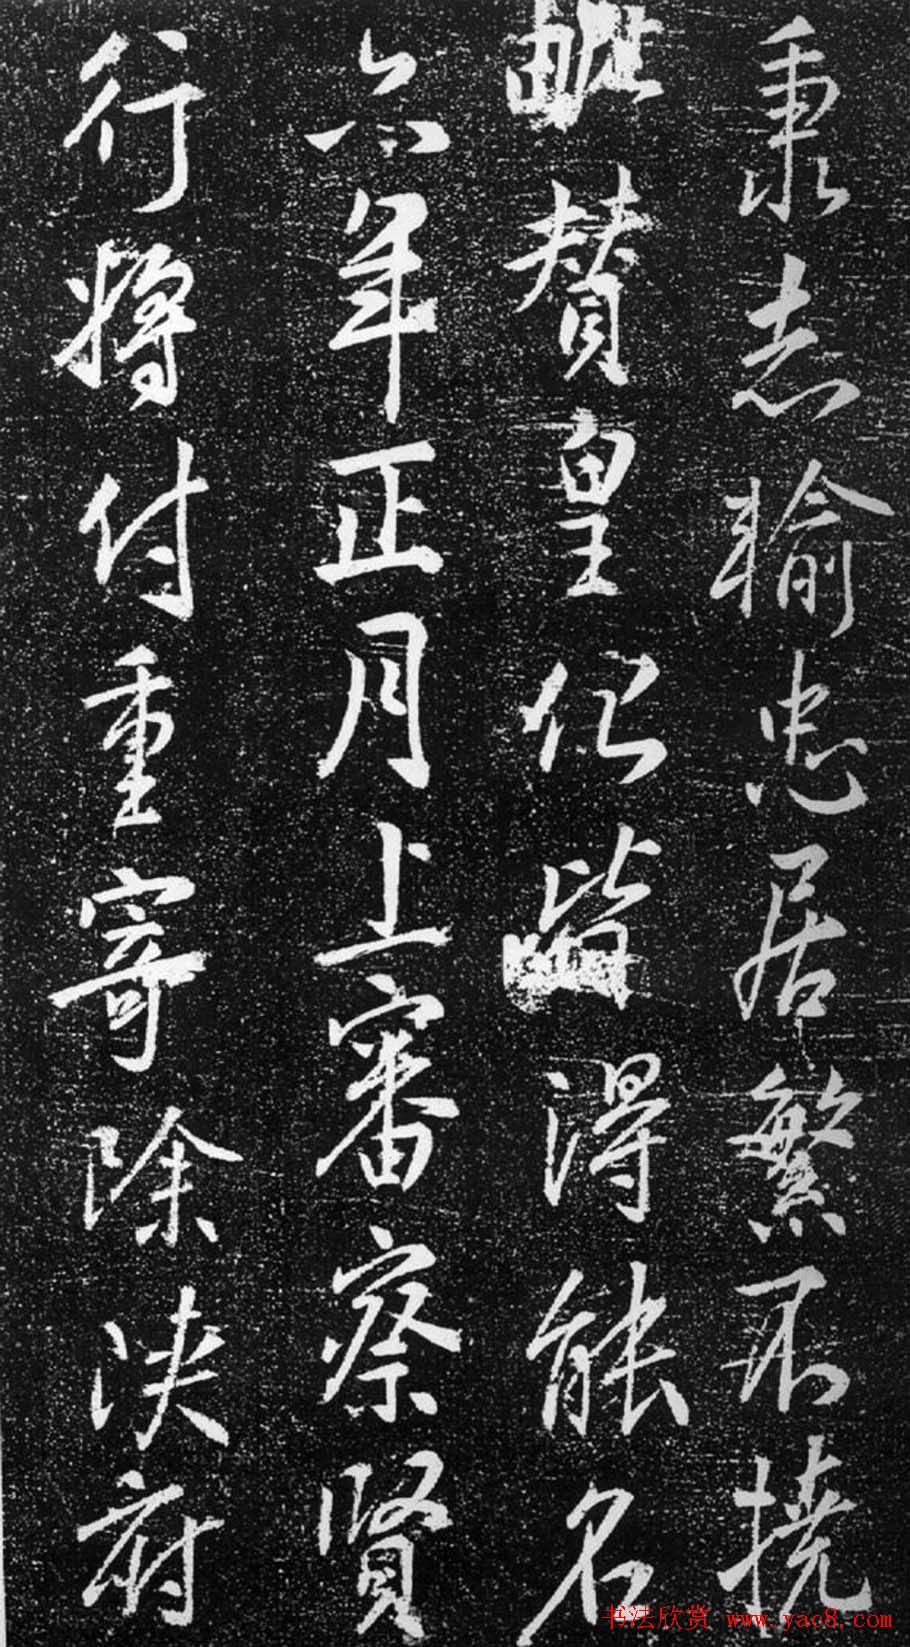 秉志輸忠居繁不撓
毗贊皇化皆得能名
六年正月上審察賢
行將付重寄除陝府
书法欣赏 www.yac8.com